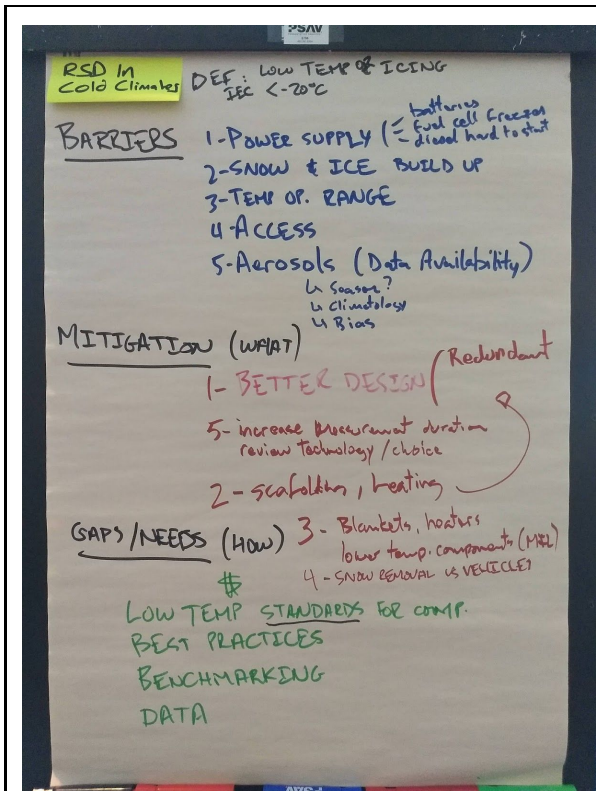 PSAV
RSD In
Cold Climates
DEF: LOW TEMP OR ICING
IEC <-20°C
BARRIERS
1-POWER SUPPLY
batteries
fuel cell freezes
diesel hard to start
2-SNOW & ICE BUILD UP
3-TEMP OP. RANGE
4-ACCESS
5-Aerosols (Data Availability)
↳ Season?
↳ Climatology
↳ Bias
MITIGATION (WHAT)
1- BETTER DESIGN
Redundant
5- increase measurement duration
review technology/choice
2- scafolding, heating
GAPS/NEEDS (HOW)
3- Blankets, heaters
lower temp. components (MIL)
4- SNOW REMOVAL VS VEHICLE?
$
LOW TEMP STANDARDS FOR COMP.
BEST PRACTICES
BENCHMARKING
DATA